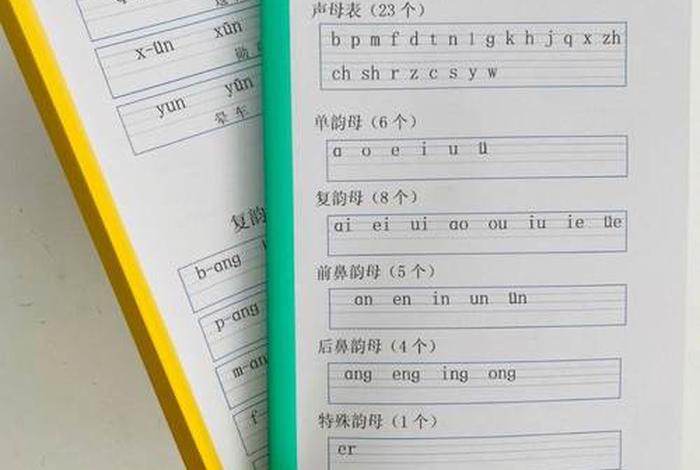 x-ün xūn
yun yūn
晕车
复韵
b-ang
p-ang
m-an
f-
声母表（23 个）
b p m f d t n l g k h j q x zh
ch sh r z c s y w
单韵母（6 个）
ɑ o e i u ü
复韵母（8 个）
ɑi ei ui ɑo ou iu ie üe
前鼻韵母（5 个）
ɑn en in un ün
后鼻韵母（4 个）
ɑng eng ing ong
特殊韵母（1 个）
er